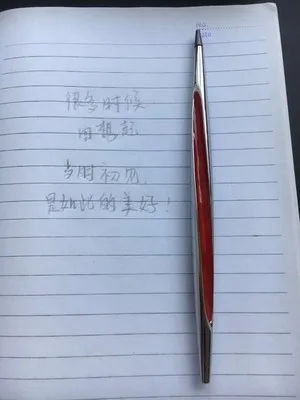 NO.
很多时候
回想起
当时初见,
是如此的美好!